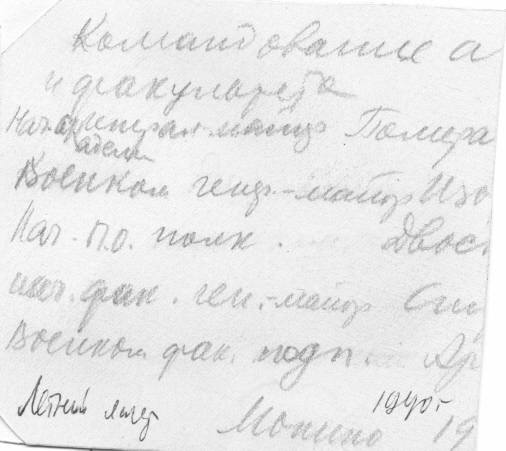 Командование а
и факультета
Нач. академии генерал-майор Помера
Военком генер-майор Изо
Нач. п.о. полк. Двос
нач. фак. ген.-майор Сми
Военком фак. подп. Ар
Летний лагер 1940 г.
Монино 19